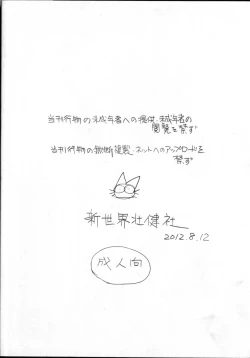 当刊行物の未成年者への提供、未成年者の
閲覧を禁ず
当刊行物の無断複製、ネットへのアップロードを
禁ず
新世界壮健社
2012.8.12
成人向